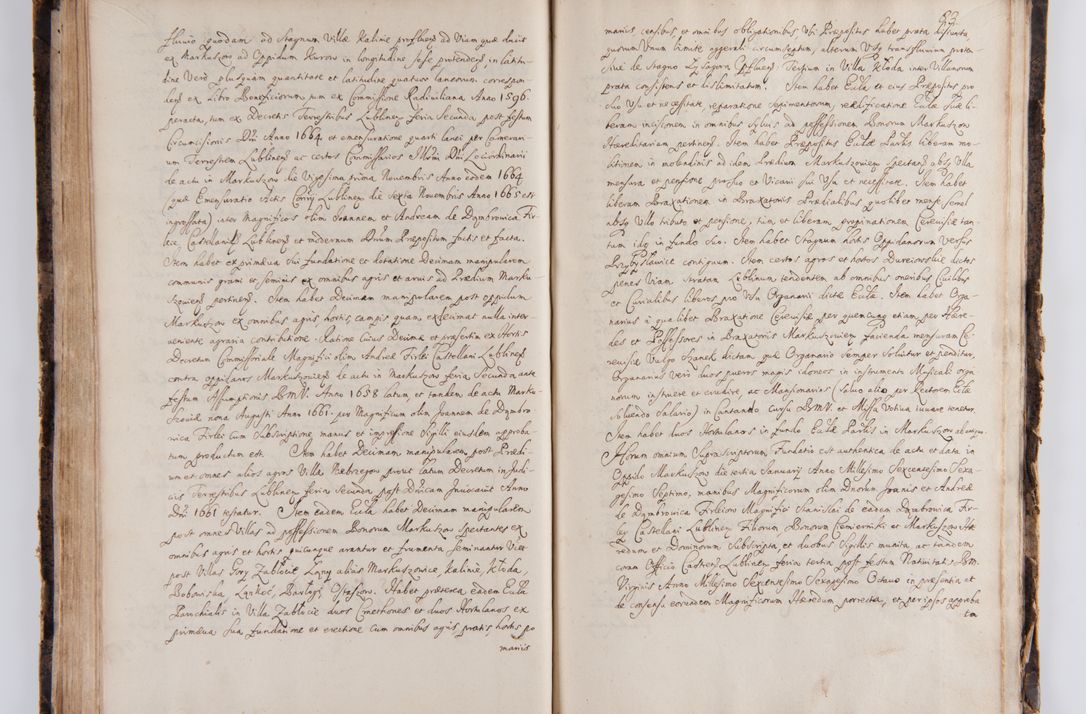 fluvio quodam ad Stagnum Villæ Kalinie profluens ad Viam quæ ducit
ex Markuszow ad Oppidum Kurow in longitudine sese protendens, in latitu-
dine Verò plusquam quantitate et latitudine quatuor laneorum correspon-
dens ex libro Beneficiorum, tum ex Commissione Radiviliana Anno 1596.
peracta, tum ex Decretis Terrestribus Lublinens feria Secunda post festum
Circumcisionis Dni Anno 1664 et emensuratione quarti lanei per Camerari-
um Terrestrem Lublinens ac certos Commissarios Illmi Dni Loci Ordinarii
de actu in Markuszow die Vigesima prima Novembris Anno eodem 1664
(quæ Emensuratio Actis Lublinen die Sexta Novembris Anno 1665 est
ingrossata) inter Magnificos olim Joannem et Andream de Dąmbrowica Fir-
leie, Castellanos Lublinens et modernum Dnum Præpositum factis et facta.
Item habet ex primæva sui fundatione et dotatione Decimam manipularem
communis grani et seminis ex omnibus agris et arvis ad Prædium Marku-
szoviens pertinens. Item habet Decimam manipularem post oppidum
Markuszow ex omnibus agris, hortis, campis quam exdecimat nulla inter-
veniente agraria contributione. Ratione cuius Decimæ et præsertim ex Hortis
Decretum Commissoriale Magnifici olim Andreæ Firlei Castellani Lublinens
contra oppidanos Markuszoviens de actu in Markuszow feria Secunda ante
festum Assumptionis B.M.V. Anno 1658 latum et tandem de actu Marku-
szoviæ nona Augusti Anno 1661. per Magnificum olim Joannem de Dąmbro-
wica Firlei cum Subscriptione manus et impressione Sigilli eiusdem approba-
tum productum est. Item habet Decimam manipularem post Prædi-
um et omnes alios agros Villæ Nobregow prout latum Decretum in Judi-
ciis Terrestribus Lublinens feria Secunda post Dncam Invocavit Anno
Dni 1661 testatur. Item eadem Eccla habet Decimam manipularem
post omnes Villas ad possessionem Bonorum Markuszow Spectantes ex
omnibus agris et hortis quicunque arantur et frumenta Seminantur Vltt
post Villas Gory, Zabłocie, Łąny alias Markuszowice, Kalinie, Kłoda,
Bobowiska, Łąnhos, Barłogi, Olszowiec. Habet præterea eadem Eccla
Parochialis in Villa Zabłocie duos Cmethones et duos Hortulanos ex
primæva sua fundatione et erectione cum omnibus agris, pratis, hortis po
mariis
83.
mariis censibus et omnibus obligationibus. Vti Præpositus habet prata disjuncta,
quorum Vnum limite aggerali circumseptum, alterum Vsq transfluvium præten-
sivè de Stagno Łysagora profluens. Tertium in Villa Kłoda inter Villanorum
prata consistens et dislimitatum. Item habet Eccla et eius Præpositus pro
suo Vsu et necessitate, reparatione Sepimentorum, reædificatione Ecclæ Suæ li-
beram incisionem in omnibus Sylvis ad possessionem Bonorum Markuszow
Hæreditariam pertinens. Item habet Præpositus Ecclæ Parlis liberam mo-
litionem in molendinis ad idem Prædium Markuszoviens Spectans absq Vlla
mensura et pensione pro suo et Vicarii sui Vsu et necessitate. Item habet
liberam Braxationem in Braxatoriis Prædialibus quolibet mense semel
absq Vllo tributo et pensione, tum et liberam propinationem Cerevisiæ tan-
tum idq in fundo suo. Item habet Stagnum hortis Oppidanorum versus
Przybysławice contiguum. Item certos agros et hortos Dwrzonowskie dictos
penes Viam Stratam Lublinum tendentem ab omnibus oneribus Civilibus
et Curialibus liberos pro Vsu Organarii dictæ Ecclæ. Item habet Orga-
narius à qualibet Braxatione Cerevisiæ per quemcunq etiam per Hære-
des et Possessores in Braxatoriis Markuszoviens facienda mensuram Ce-
revisiæ Vulgo Konewk dictam, quæ Organario semper Solvitur et penditur,
Organarius verò duos pueros magis idoneos in instrumento Musicali orga-
norum instruere et erudire, ac Mansionarios (salvo alio per Rectorem Ecclæ
solvendo Salario) in Cantando Cursu B.M.V. et Missa Votiva iuvare tenetur.
Item habet duos Hortulanos in fundo Ecclæ Parlis in Markuszow
Horum omnium Suprascriptorum Fundatio est authentica de actu et data in
Oppido Markuszow die tertia Januarii Anno Millesimo Sexcentesimo Sexa-
gesimo Septimo, manibus Magnificorum olim Dnorum Joannis et Andreæ
de Dąmbrowica Firleiorum Magnifici Stanislai de eadem Dąmbrowica Fir-
lei Castellani Lublinens Filiorum, Bonorum Czemierniki et Markuszow Hæ-
redum et Dominorum Subscripta, et duobus Sigillis munita, ac tandem
coram Officio Castrens Lublinens feria tertia post festum Nativitatis B.M.
Virginis Anno Millesimo Sexcentesimo Sexagesimo Octavo in præsentia et
de consensu eorundem Magnificorum Hæredum porrecta, et per ipsos approba
ta